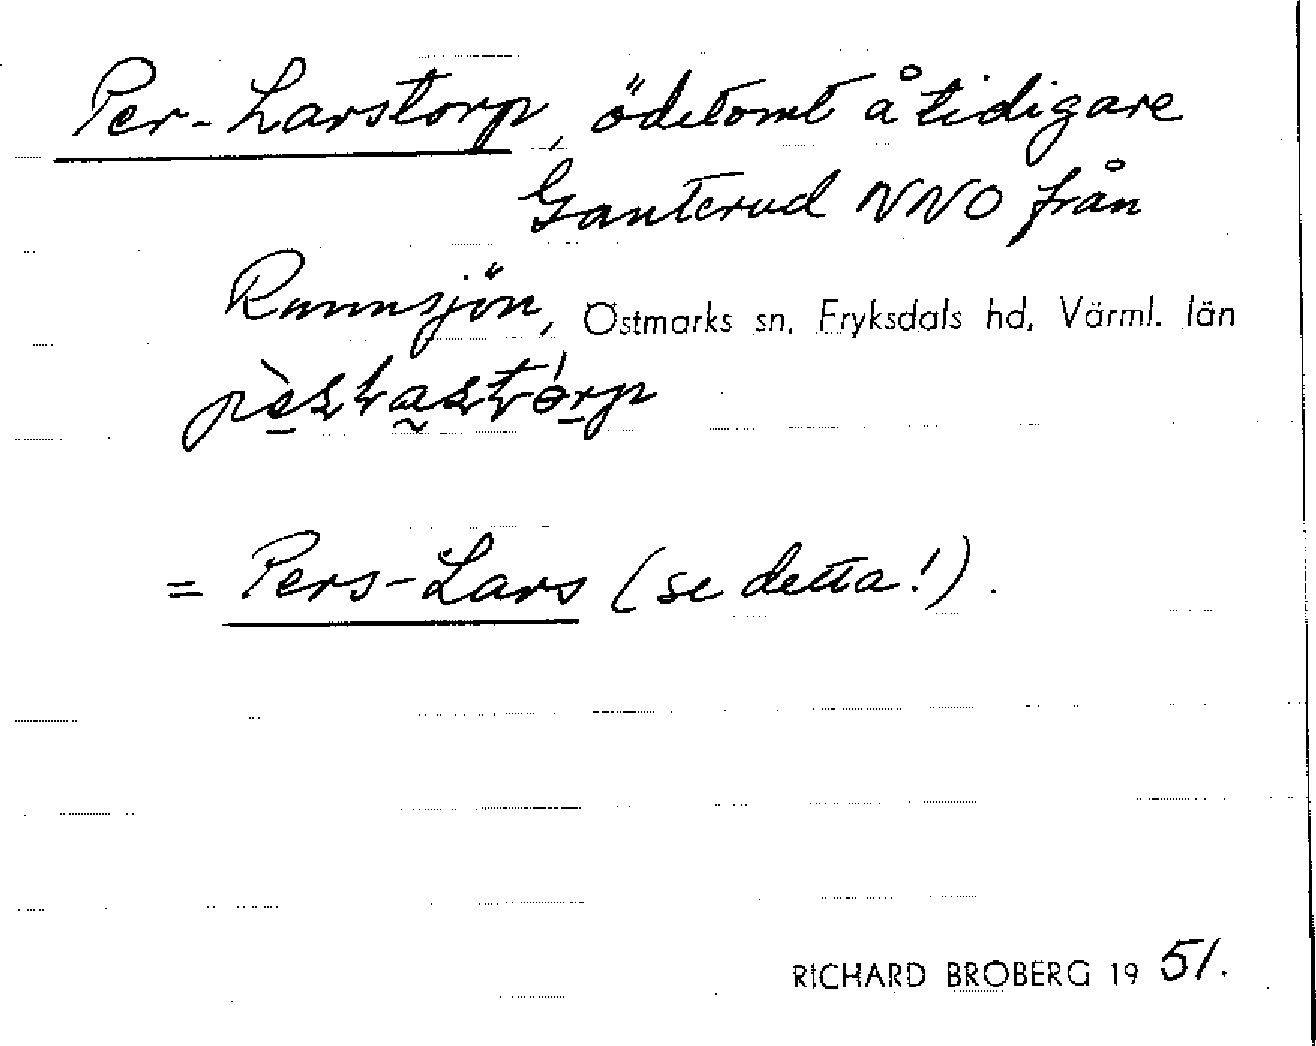 Per-Larstorp, ödetomt å tidigare
Ganterud NNO från
Runnsjön, Östmarks sn, Fryksdals hd, Värml. län
= Pers-Lars (se detta!).
RICHARD BROBERG 19 51.